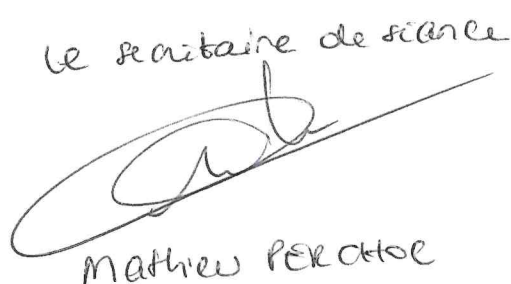 le secrétaire de séance
Mathieu PERCHOC